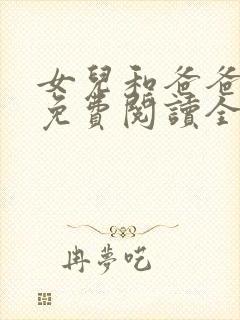 女兒和爸爸
免費閱讀全
冉夢呓